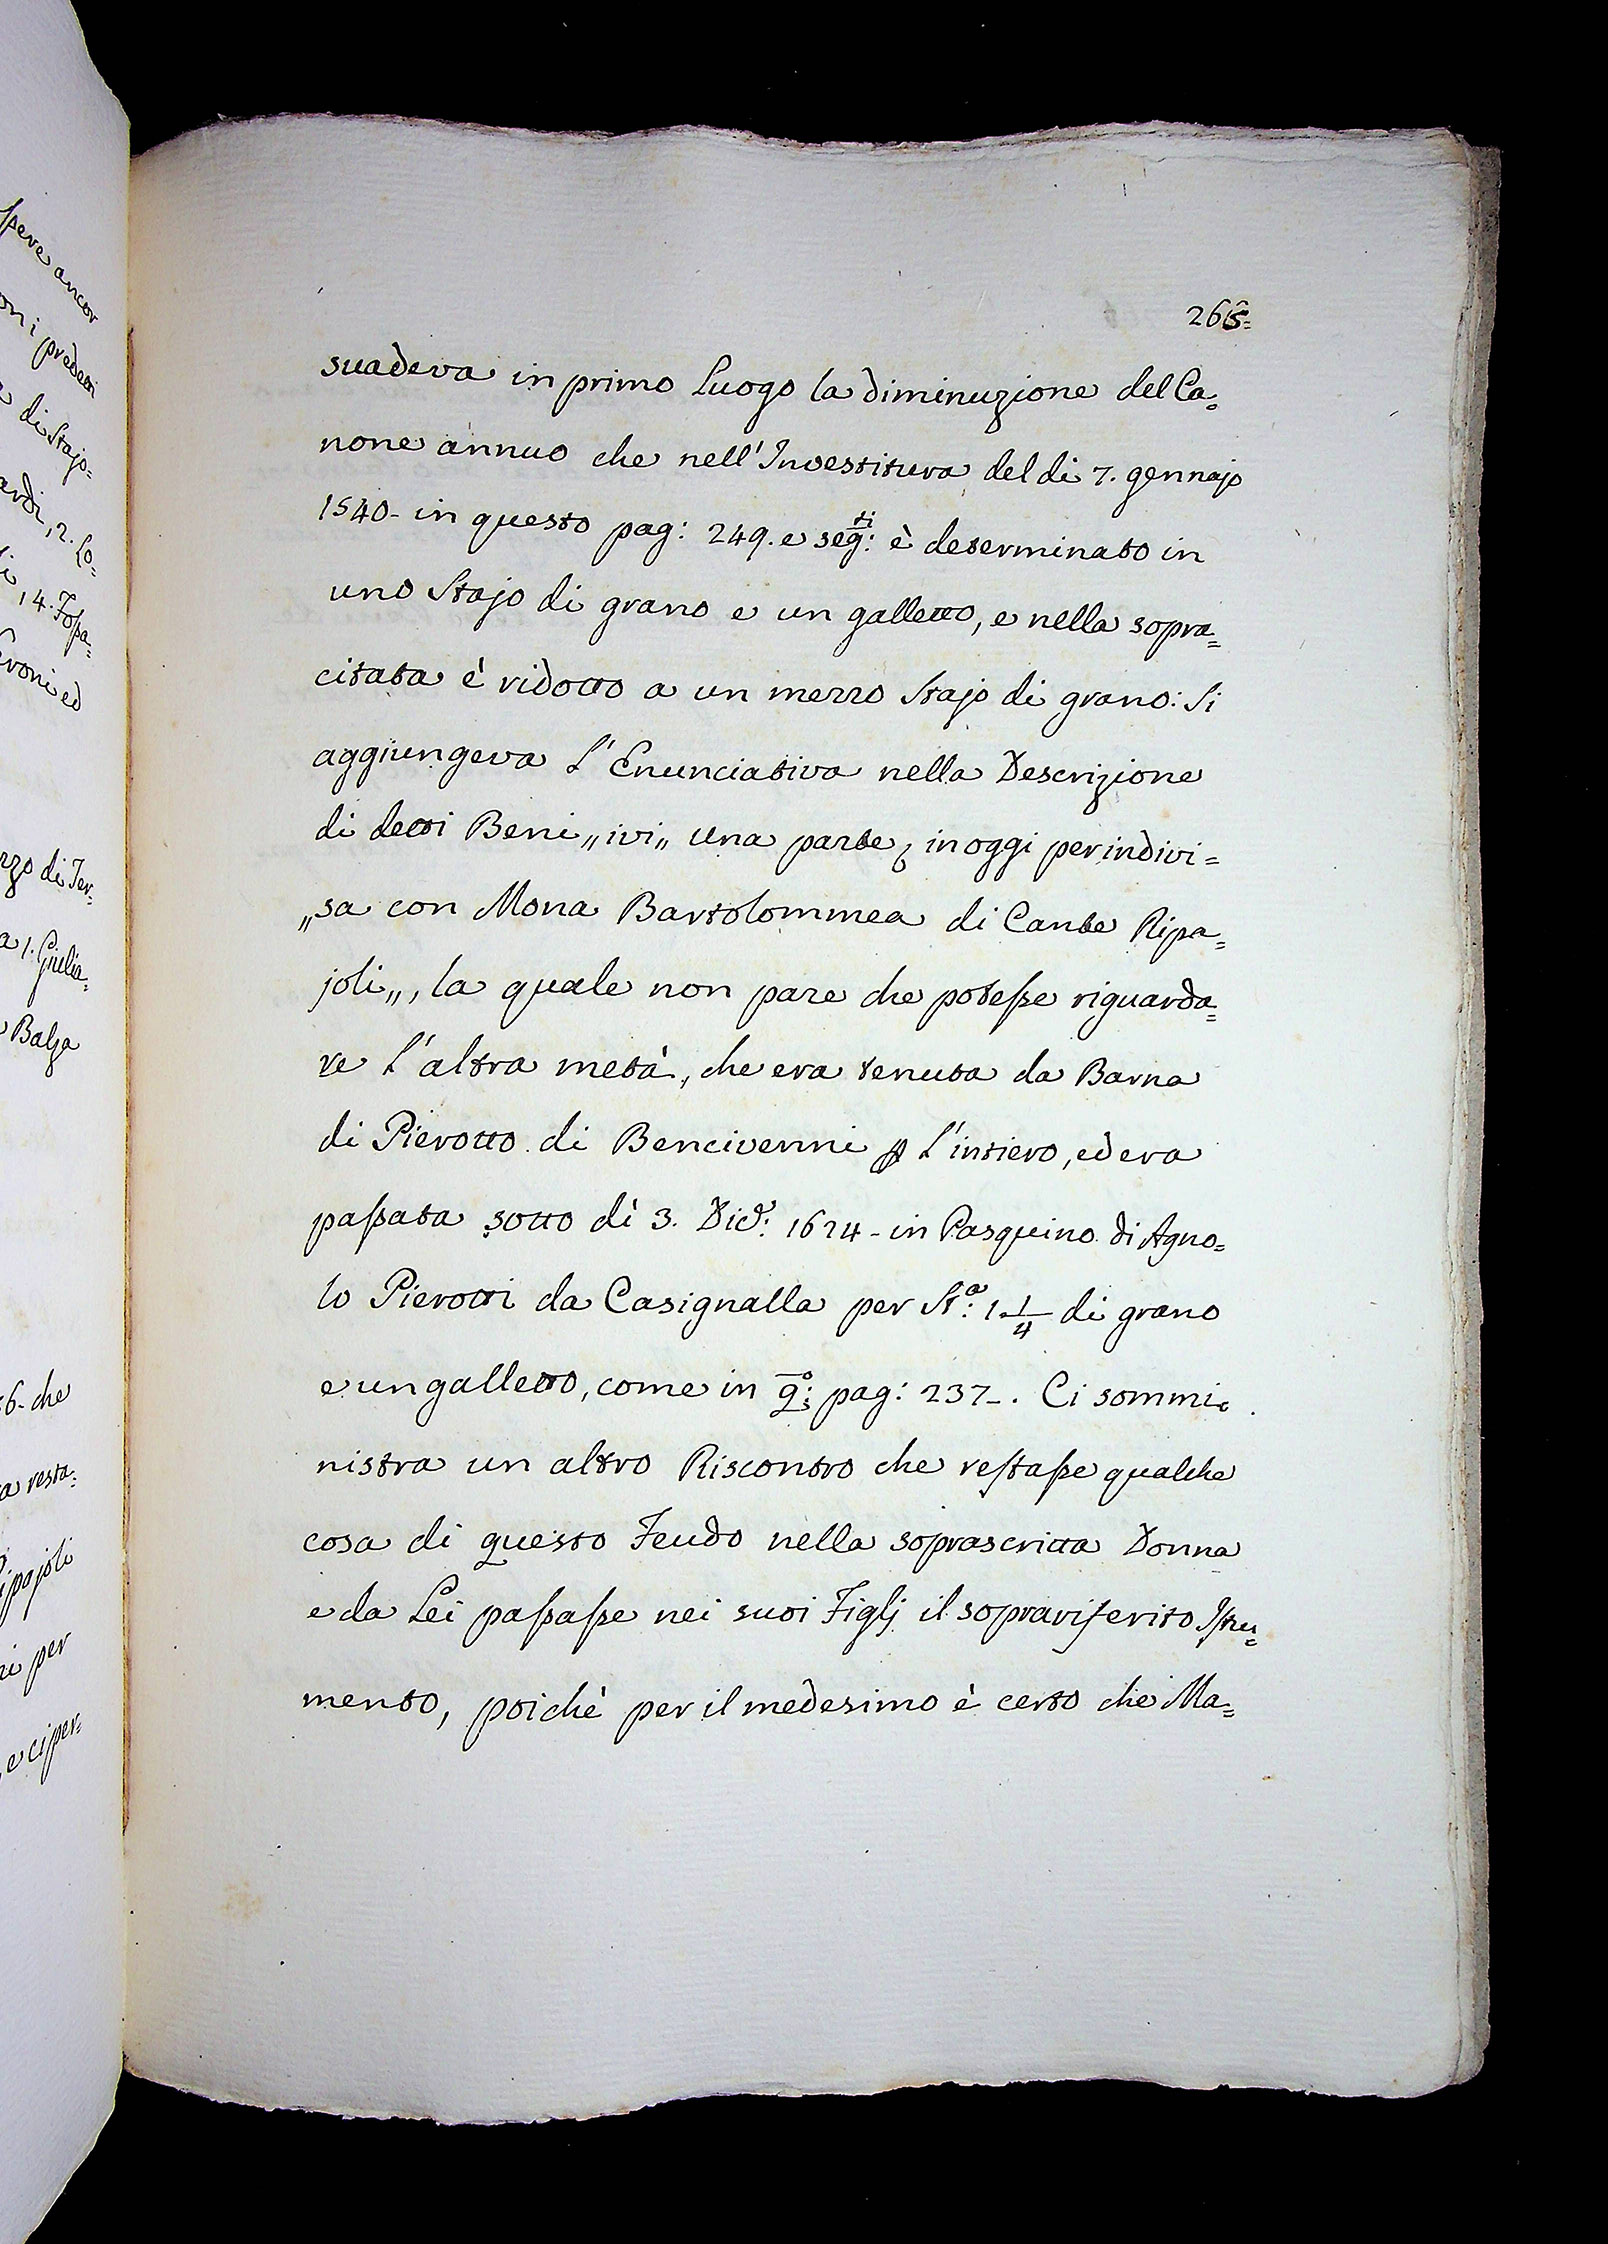 spere ancor
oni predetti
di Stajo=
ardi, 2. Lo=
i, 4. Fossa=
eroni ed
rzo di Ter=
a 1. Giulia=
Balza
56- che
a resta=
ipajoli
ni per
e ci per=
265=
suadeva in primo Luogo la diminuzione del Ca=
none annuo che nell'Investitura del di 7. gennajo
1540- in questo pag: 249. e seg:ti è determinato in
uno Stajo di grano e un galletto, e nella sopra=
citata è ridotto a un mezzo Stajo di grano: Si
aggiungeva L'Enunciativa nella Descrizione
di detti Beni „ivi„ una parte, in oggi per indivi=
„sa con Mona Bartolommea di Cante Ripa=
joli„, la quale non pare che potesse riguarda=
re L'altra metà, che era tenuta da Barna
di Pierotto di Bencivenni p L'intiero, ed era
passata sotto dì 3. Dic.e: 1624- in Pasquino di Agno=
lo Pierotti da Casignalla per St.a: 1 1/4 di grano
e un galletto, come in q.o: pag: 237-. Ci sommi=
nistra un altro Riscontro che restasse qualche
cosa di questo Feudo nella soprascritta Donna
e da Lei passasse nei suoi Figlj il sopraviferito Istru=
mento, poichè per il medesimo è certo che Ma=